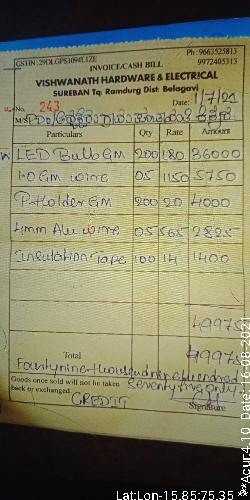 GSTIN :29DLGPS1094L1ZE Ph : 9663525813
INVOICE/CASH BILL 9972405313
VISHWANATH HARDWARE & ELECTRICAL
SUREBAN Tq Ramdurg Dist Belagavi
No. 243 Date: 1/7/21
M/s PDO
Particulars Qty Rate Amount
LED Bulb GM 200 180 36000
1·0 GM wire 05 1150 5750
P-Holder GM 200 20 4000
4mm Alu wire 05 565 2825
Insulation Tape 100 14 1400
49975
Total 49975
Fourtynine thousand nine hundred
Goods once sold will not be taken Seventy five only
back or exchanged
CREDIT Signature
LatLon-15.85:75.35
**Acur:4.10 Date:16-08-2021